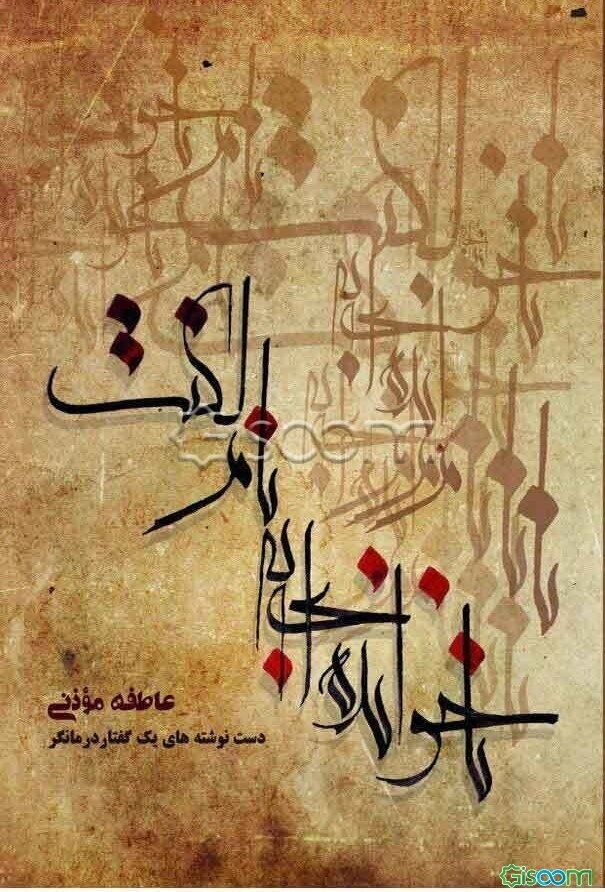 لکنت
به نام
ناخوانده
عاطفه مؤذنی
دست نوشته های یک گفتاردرمانگر
Gisoom
Gisoom